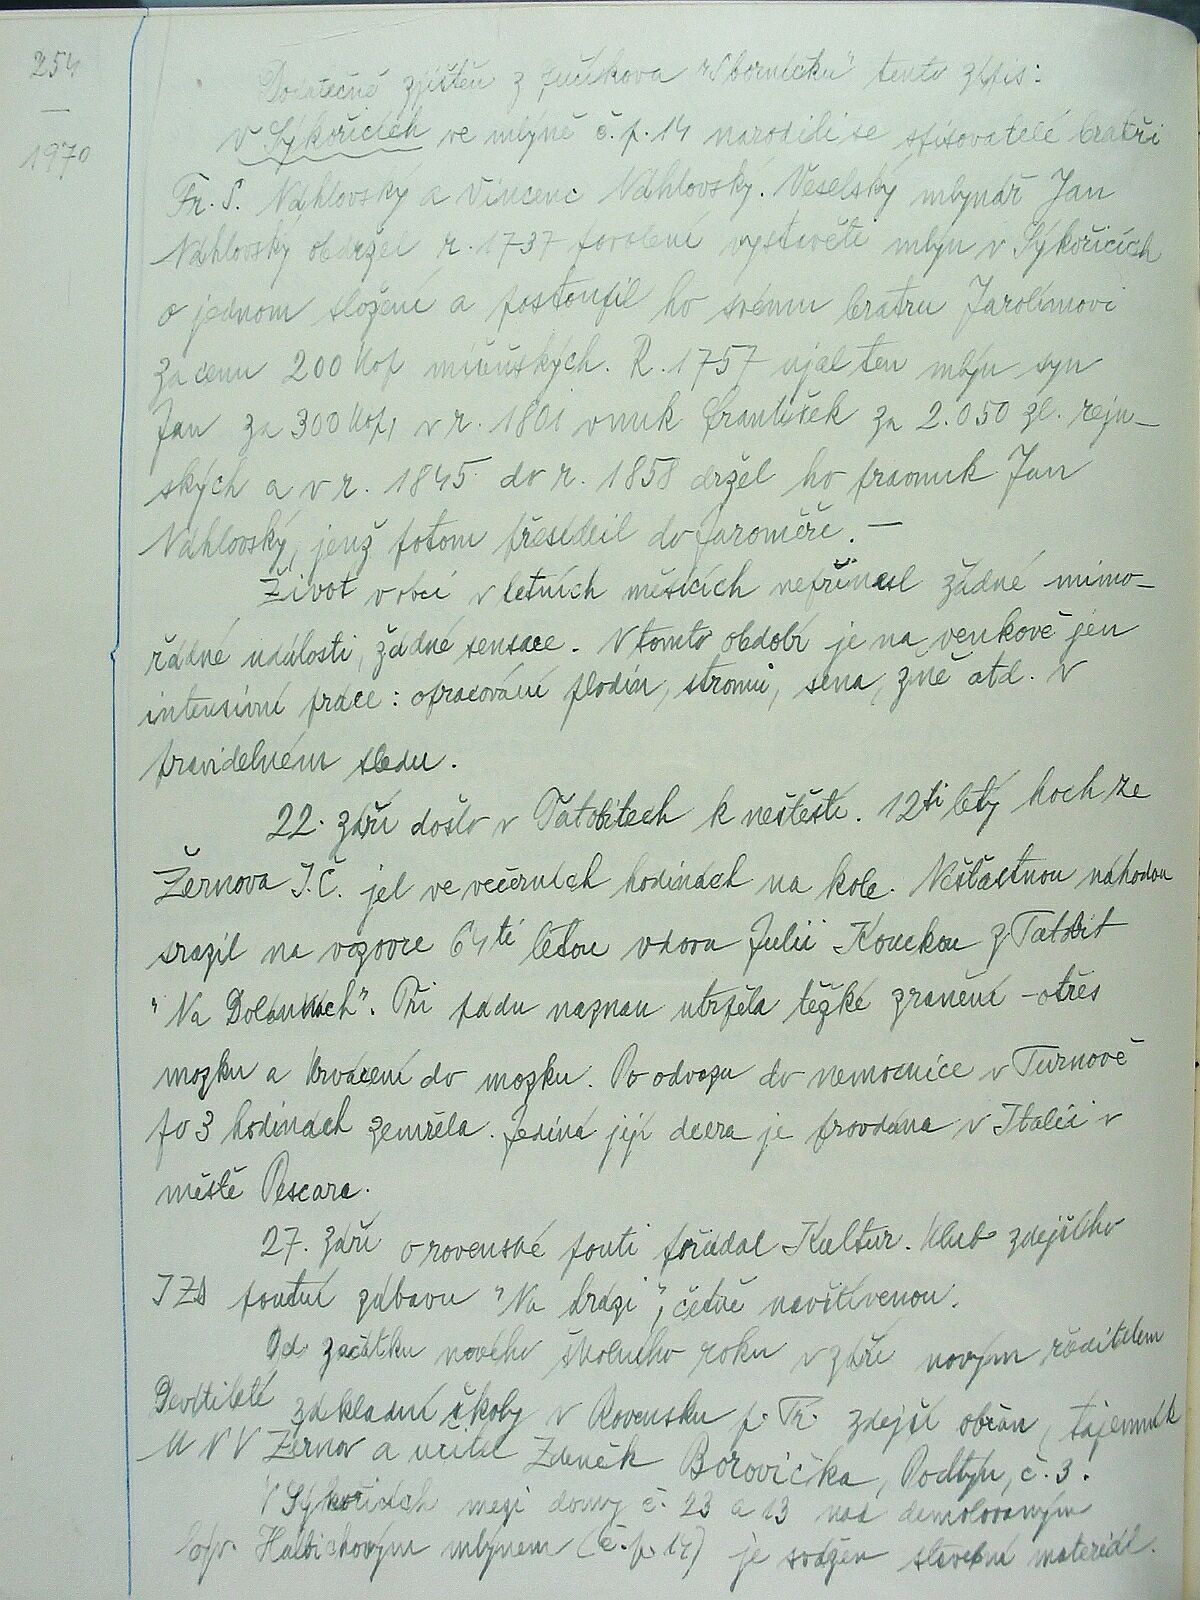 254
—
1970
Dodatečně zjištěn z Fučíkova "Sborníčku" tento zápis:
V Sýkořicích ve mlýně č.p. 14 narodili se spisovatelé bratři
Fr. S. Náhlovský a Vincenc Náhlovský. Veselský mlynář Jan
Náhlovský obdržel r. 1737 povolení vystavěti mlýn v Sýkořicích
o jednom složení a postoupil ho svému bratru Jarolímovi
za cenu 200 kop míšeňských. R. 1757 ujal ten mlýn syn
Jan za 300 kop, v r. 1801 vnuk František za 2.050 zl. rejn-
ských a v r. 1845 do r. 1858 držel ho pravnuk Jan
Náhlovský, jenž potom přesídlil do Jaroměře. —
Život v obci v letních měsících nepřinesl žádné mimo-
řádné události, žádné sensace. V tomto období je na venkově jen
intensivní práce: opracování plodin, stromů, sena, žně atd. v
pravidelném sledu.
22. září došlo v Tatobitech k neštěstí. 12ti letý hoch ze
Žernova J.Č. jel ve večerních hodinách na kole. Nešťastnou náhodou
srazil na vozovce 64 tí letou vdovu Julii Kouckou z Tatobit
"Na Dolánkách". Při pádu naznak utrpěla těžké zranění - otřes
mozku a krvácení do mozku. Po odvozu do nemocnice v Turnově
po 3 hodinách zemřela. Jediná její dcera je provdána v Italii v
městě Pescara.
27. září o rovenské pouti pořádal Kultur. klub zdejšího
JZD pouťní zábavu "Na hrázi", četně navštívenou.
Od začátku nového školního roku v září novým ředitelem
Devítileté základní školy v Rovensku p. Tr. zdejší občan, tajemník
MNV Žernov a učitel Zdeněk Borovička, Podlýp, č. 3.
V Sýkořicích mezi domy č. 23 a 13 nad demolovaným
Halbichovým mlýnem (č.p. 14) je svážen stavební materiál.